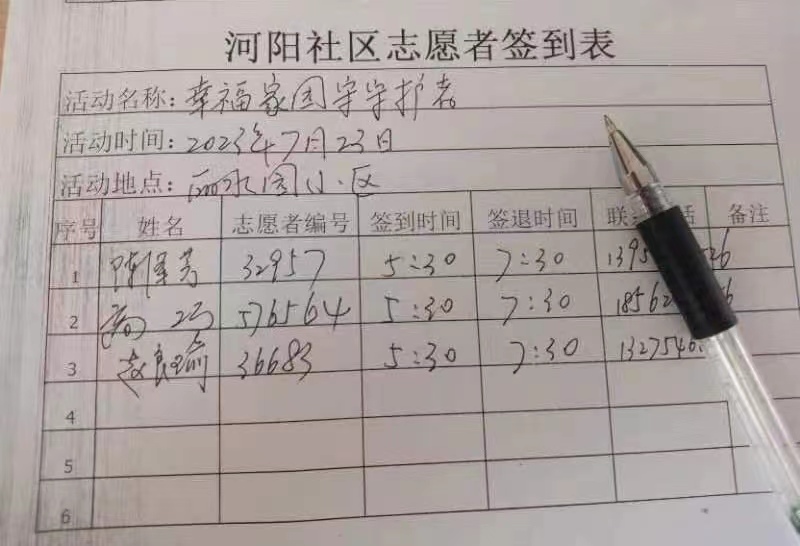 河阳社区志愿者签到表
活动名称：幸福家园守护者
活动时间：2023年7月23日
活动地点：丽水园小区
序号 姓名 志愿者编号 签到时间 签退时间 联 话 备注
1 32957 5:30 7:30 1395 26
2 576564 5:30 7:30 18562 56
3 赵良瑜 36683 5:30 7:30 1327546
4
5
6